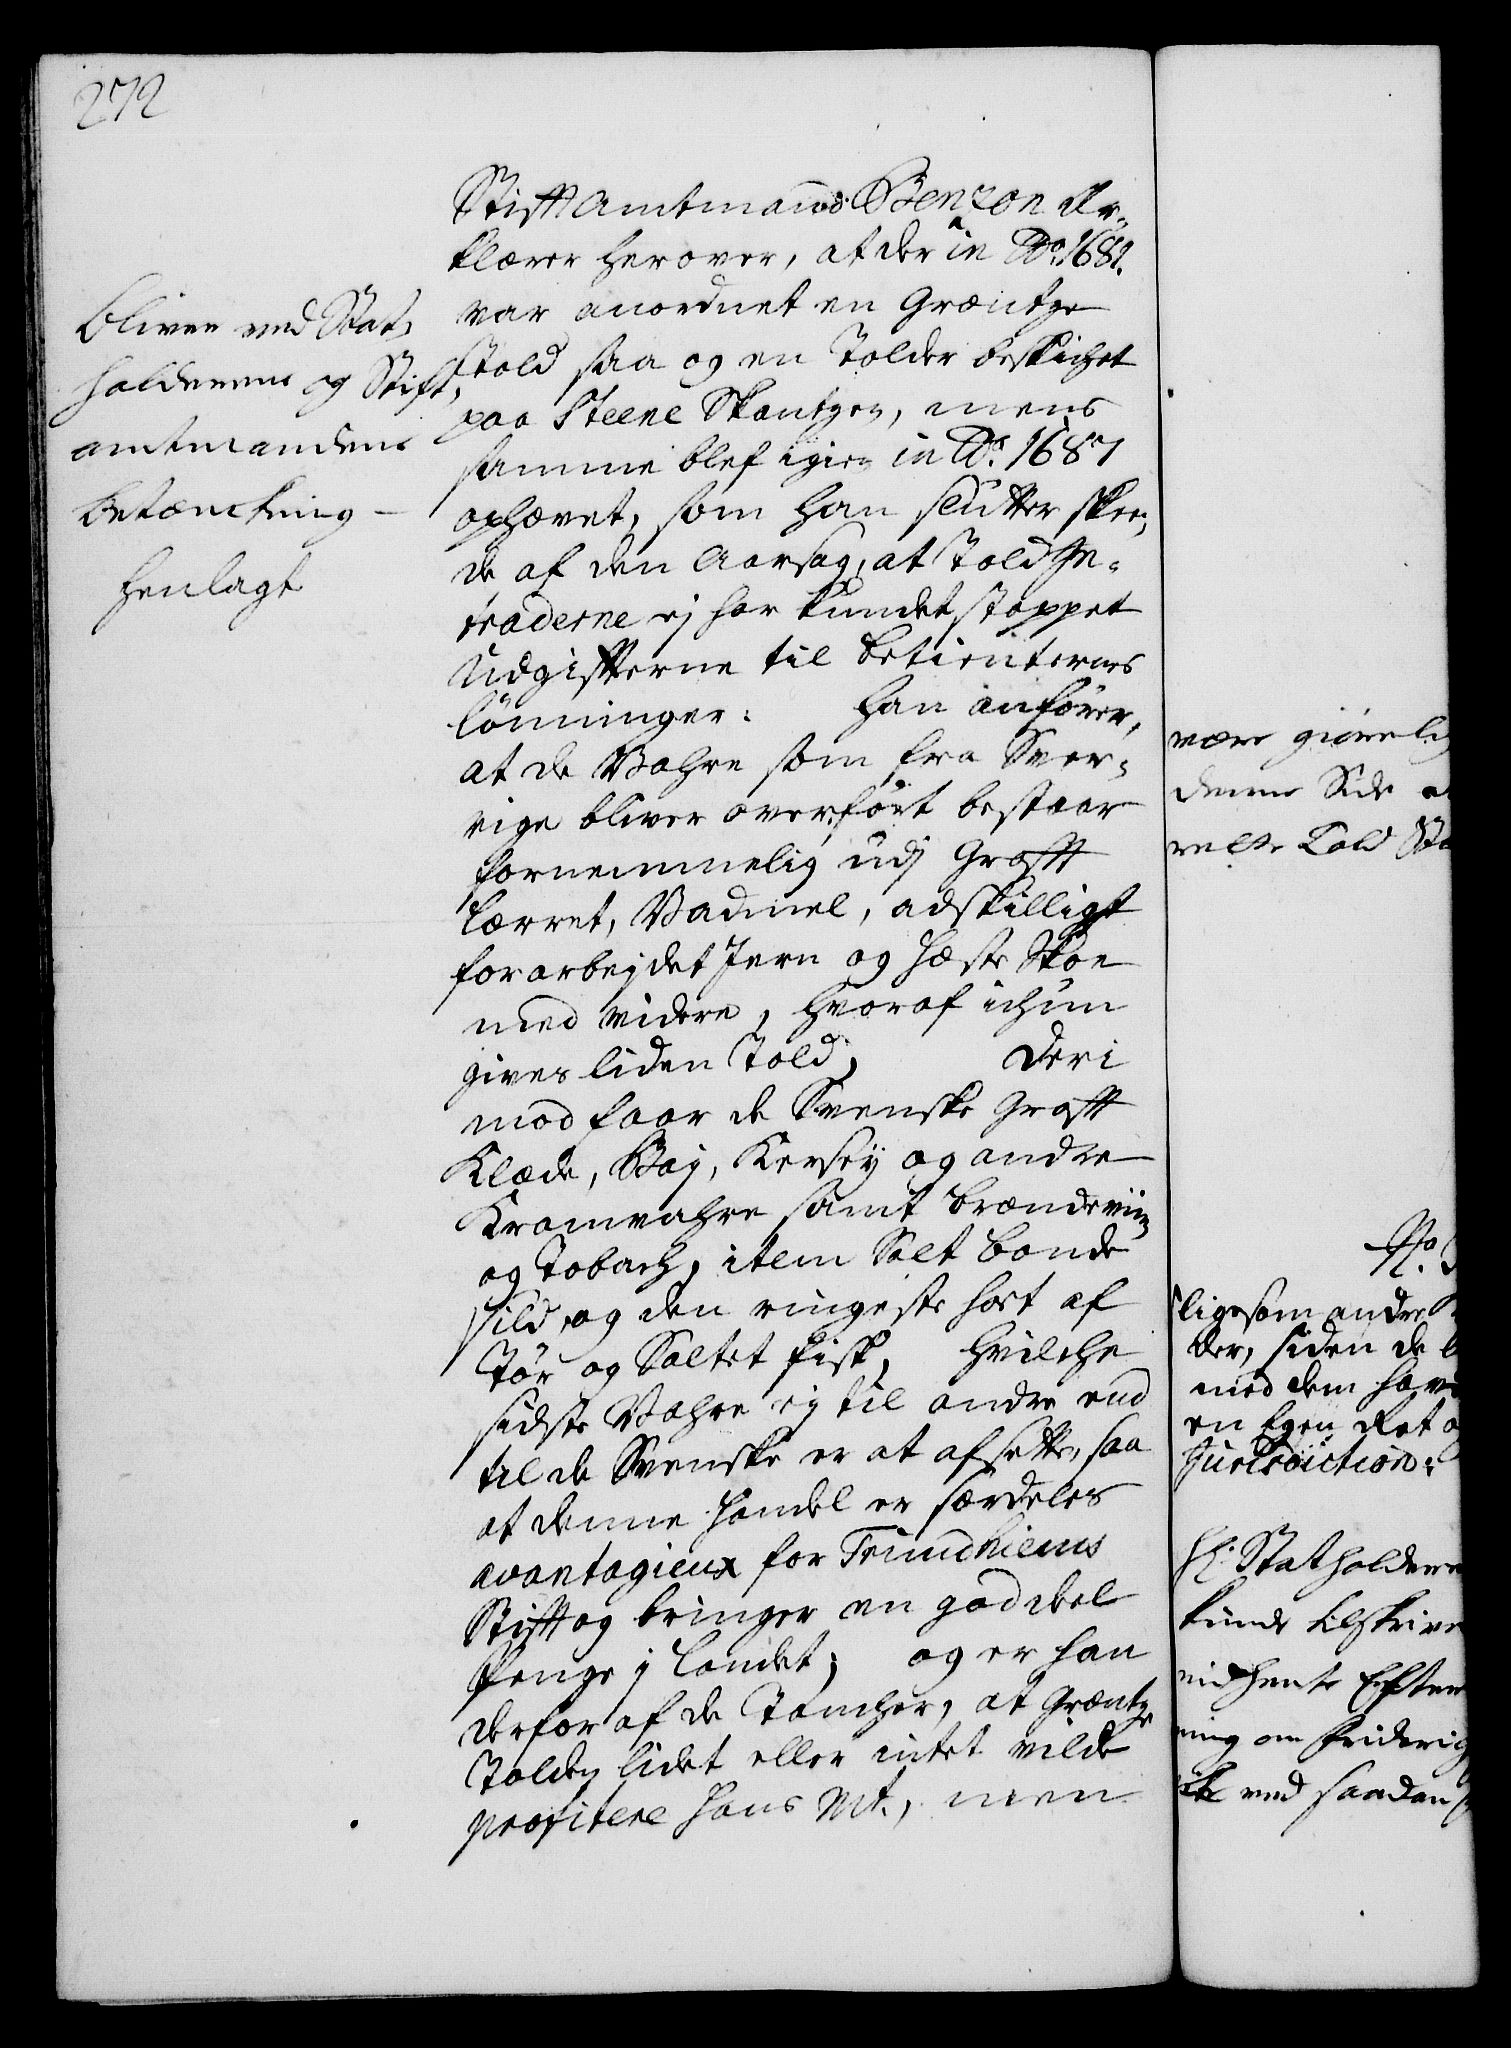 272
Bliver ved Stat-
holderens og Stift-
amtmandens
Betænckning -
henlagt
Stifft Amtmand Benzon Er-
klærer herover, at der in Ao. 1681.
var anordnet en Græntze
Told saa og en Tolder beskichet
paa Steene Skantzen, mens
samme blef igien in Ao. 1687
ophævet, som han slutter skee-
de af den Aarsag, at Told In-
traderne ej har kundet stoppet
Udgifterne til betienternes
lönninger: Han anfører,
at de Vahre som fra Sver-
rige bliver overfört bestaar
fornemmelig udj Groft
Lærret, Vadmel, adskilligt
forarbejdet Jern og Hæste Skoe
med videre, hvoraf ichun
gives liden Told, Deri
mod faar de Svenske Groft
Klæde, Baj, Kersey og andre
Kramvahre samt brændeviin
og Toback, item Salt bonde
sild, og den ringeste sort af
Tör og Saltet fisk, hvilche
sidste Vahre ej til andre end
til de Svenske er at afsette, saa
at denne Handel er særdeles
avantagieux for Trundhiems
Stift og bringer en god deel
Penge j Landet; og er han
derfor af de Tancher, at Græntze
Tolden lidet eller intet vilde
profitere Hans Mt., men
være giørelig
denne Side
Told
No.
ligesom andre
der, siden de
med dem have
en Egen Ret
Jurisdiction:
Hr. Statholdere
kunde tilskrive
indhente Efter
ning om Friderich
ved saadan